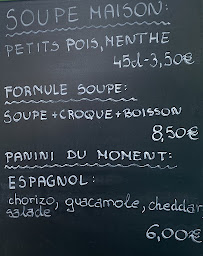 SOUPE MAISON:
PETITS POIS, MENTHE
45cl-3,50€
FORMULE SOUPE:
SOUPE+CROQUE+BOISSON
8,50€
PANINI DU MOMENT:
ESPAGNOL:
chorizo, guacamole, cheddar
salade
6,00€